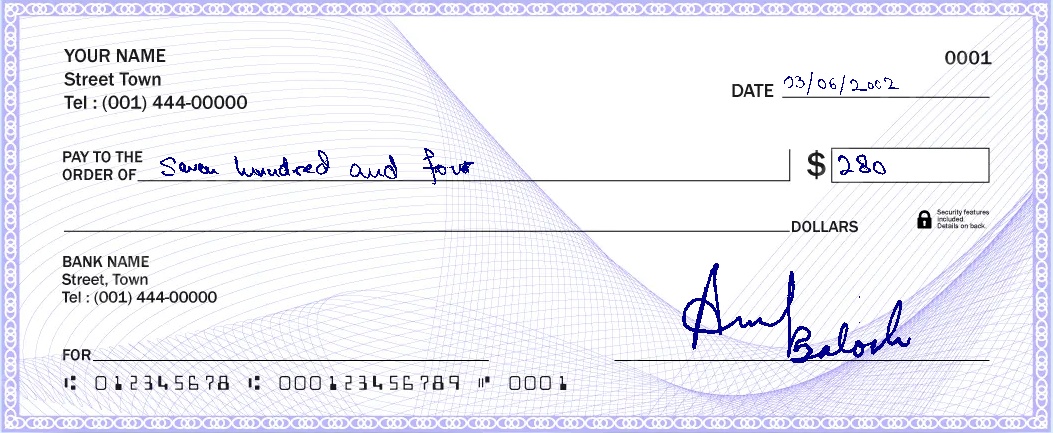 YOUR NAME
0001
Street Town
DATE 03/06/2002
Tel : (001) 444-00000
PAY TO THE
ORDER OF Seven hundred and four $ 280
DOLLARS
Security features
included.
Details on back.
BANK NAME
Street, Town
Tel : (001) 444-00000
Baloch
FOR
⑆ 012345678 ⑆ 000123456789 ⑈ 0001